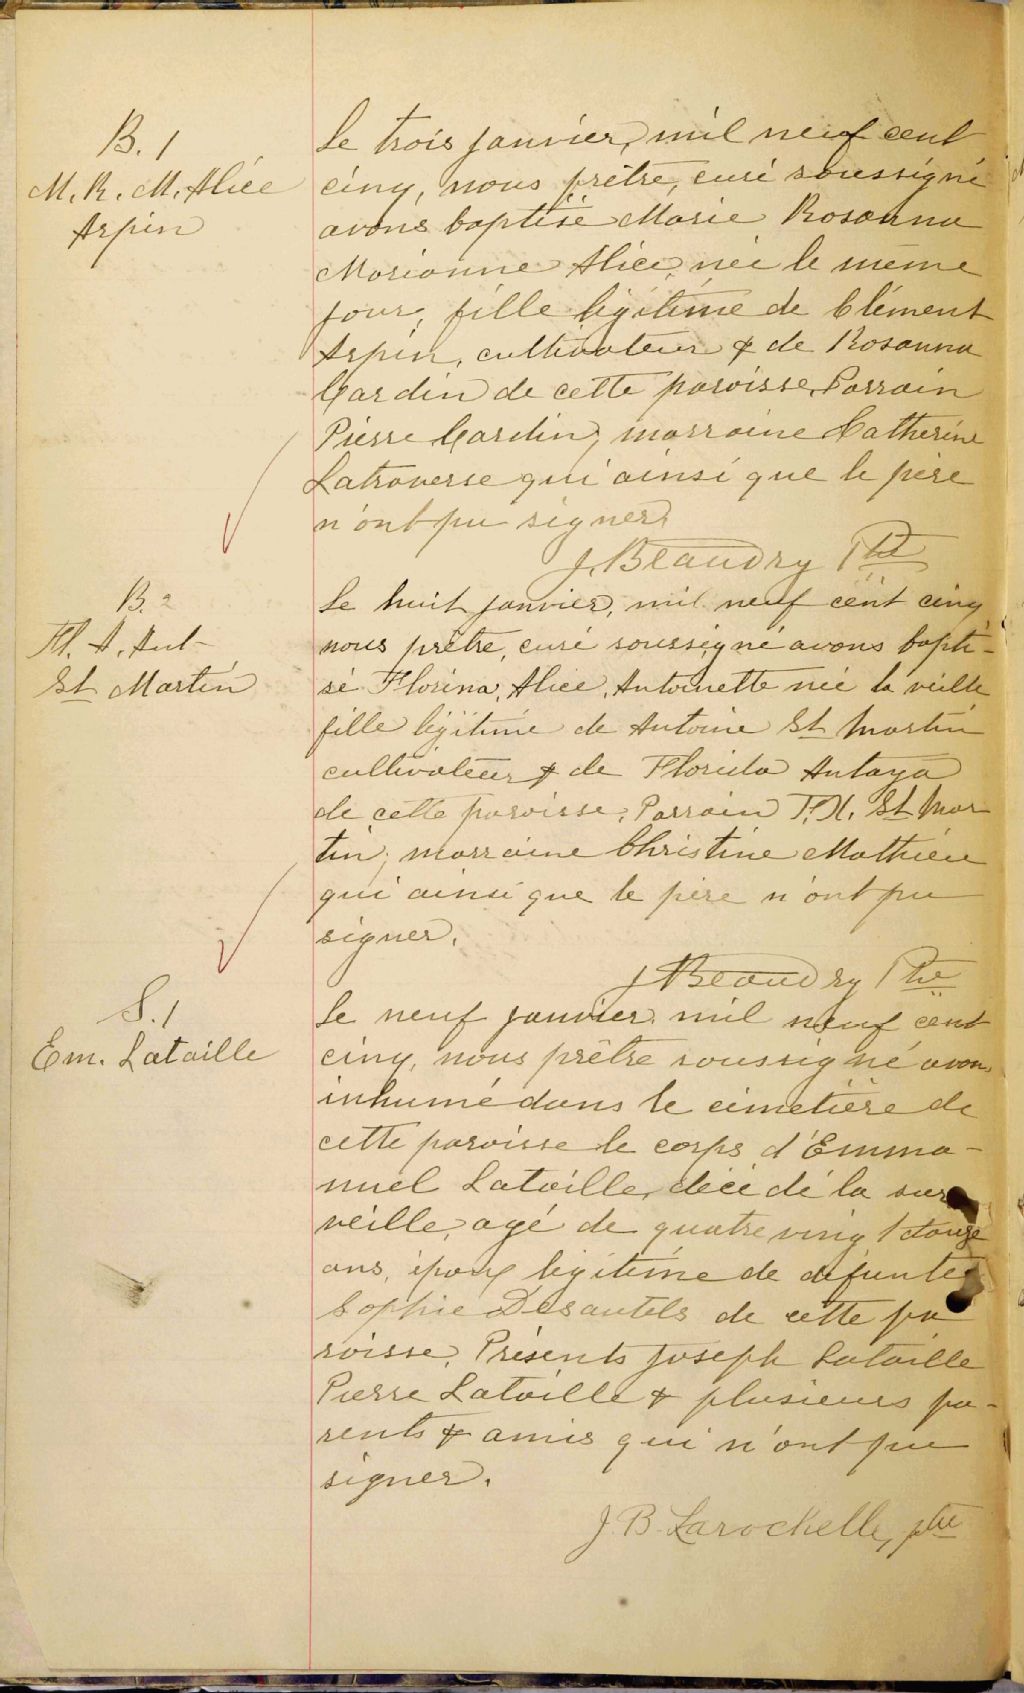 B. 1
M. R. M. Alice
Arpin
Le trois janvier, mil neuf cent
cinq, nous prêtre, curé soussigné
avons baptisé Marie Rosanna
Marianne Alice, née le même
jour, fille légitime de Clément
Arpin, cultivateur & de Rosanna
Cardin de cette paroisse. Parrain
Pierre Cardin, marraine Catherine
Latraverse qui ainsi que le père
n'ont pu signer.
J. Beaudry Ptre
B. 2
Fl. A. Ant
St Martin
Le huit janvier, mil neuf cent cinq
nous prêtre, curé soussigné avons bapti-
sé Florina, Alice, Antoinette née la veille
fille légitime de Antoine St Martin
cultivateur & de Florida Antaya
de cette paroisse. Parrain F.X. St Mar
tin, marraine Christine Mathieu
qui ainsi que le père n'ont pu
signer.
J. Beaudry Ptre
S. 1
Em. Lataille
Le neuf janvier mil neuf cent
cinq, nous prêtre soussigné avons
inhumé dans le cimetière de
cette paroisse le corps d'Emma-
nuel Lataille, décédé la sur
veille, agé de quatre ving t douze
ans, époux légitime de défunte
Sophie Desautels de cette pa
roisse. Présents Joseph Lataille
Pierre Lataille & plusieurs pa-
rents & amis qui n'ont pu
signer.
J. B. Larochelle, ptre